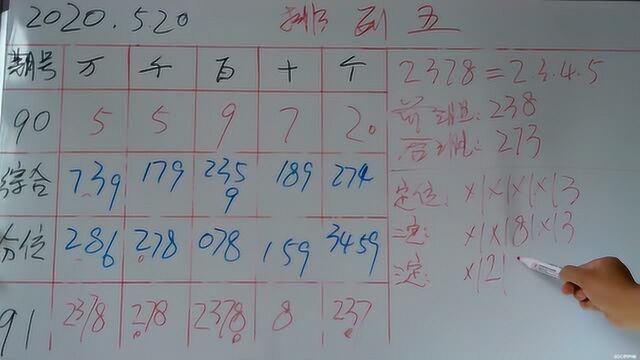 2020.5.20 排列五
期号 万 千 百 十 个
90 5 5 9 7 2
综合 739 179 2359 189 274
分位 286 278 078 159 3459
91 2378 278 2378 8 237
2378=2.3.4.5
前组:238
后组:273
定位: X|X|X|X|3
二定: X|X|8|X|3
三定: X|2|